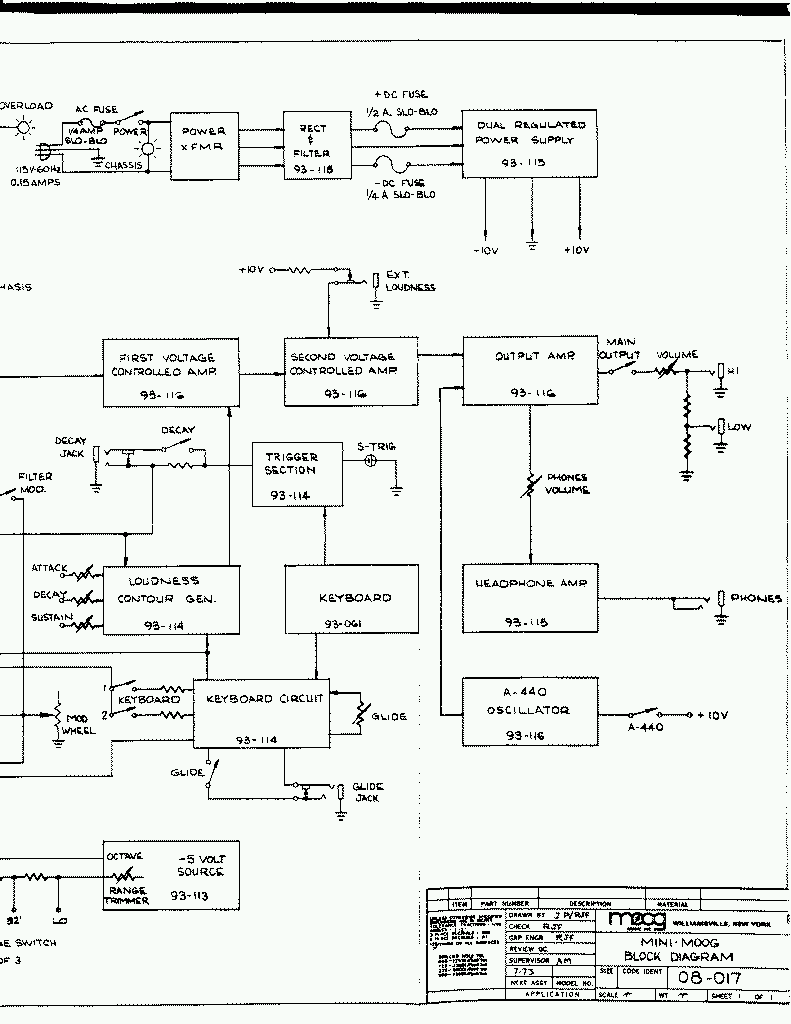 OVERLOAD
AC FUSE
1/4 AMP
SLO-BLO
POWER
115V-60Hz
0.15AMPS
CHASSIS
POWER
XFMR
RECT
&
FILTER
93-115
+DC FUSE
1/2 A. SLO-BLO
-DC FUSE
1/4 A SLO-BLO
DUAL REGULATED
POWER SUPPLY
93-115
-10V
+10V
HASIS
+10V
EXT.
LOUDNESS
FIRST VOLTAGE
CONTROLLED AMP.
93-116
SECOND VOLTAGE
CONTROLLED AMP
93-116
OUTPUT AMP
93-116
MAIN
OUTPUT
VOLUME
HI
LOW
DECAY
JACK
DECAY
TRIGGER
SECTION
93-114
S-TRIG
PHONES
VOLUME
FILTER
MOD.
ATTACK
DECAY
SUSTAIN
LOUDNESS
CONTOUR GEN.
93-114
KEYBOARD
93-061
HEADPHONE AMP
93-115
PHONES
1
KEYBOARD
2
MOD
WHEEL
KEYBOARD CIRCUIT
93-114
GLIDE
A-440
OSCILLATOR
93-116
A-440
+10V
GLIDE
GLIDE
JACK
OCTAVE
RANGE
TRIMMER
-5 VOLT
SOURCE
93-113
32'
LO
GE SWITCH
OF 3
ITEM
PART NUMBER
DESCRIPTION
MATERIAL
DRAWN BY
CHECK RJF
REVIEW QC
SUPERVISOR AM
7-73
NEXT ASSY
MODEL NO.
APPLICATION
moog
WILLIAMSVILLE, NEW YORK
MINI-MOOG
BLOCK DIAGRAM
SIZE
CODE IDENT
08-017
SCALE
WT
SHEET 1 OF 1